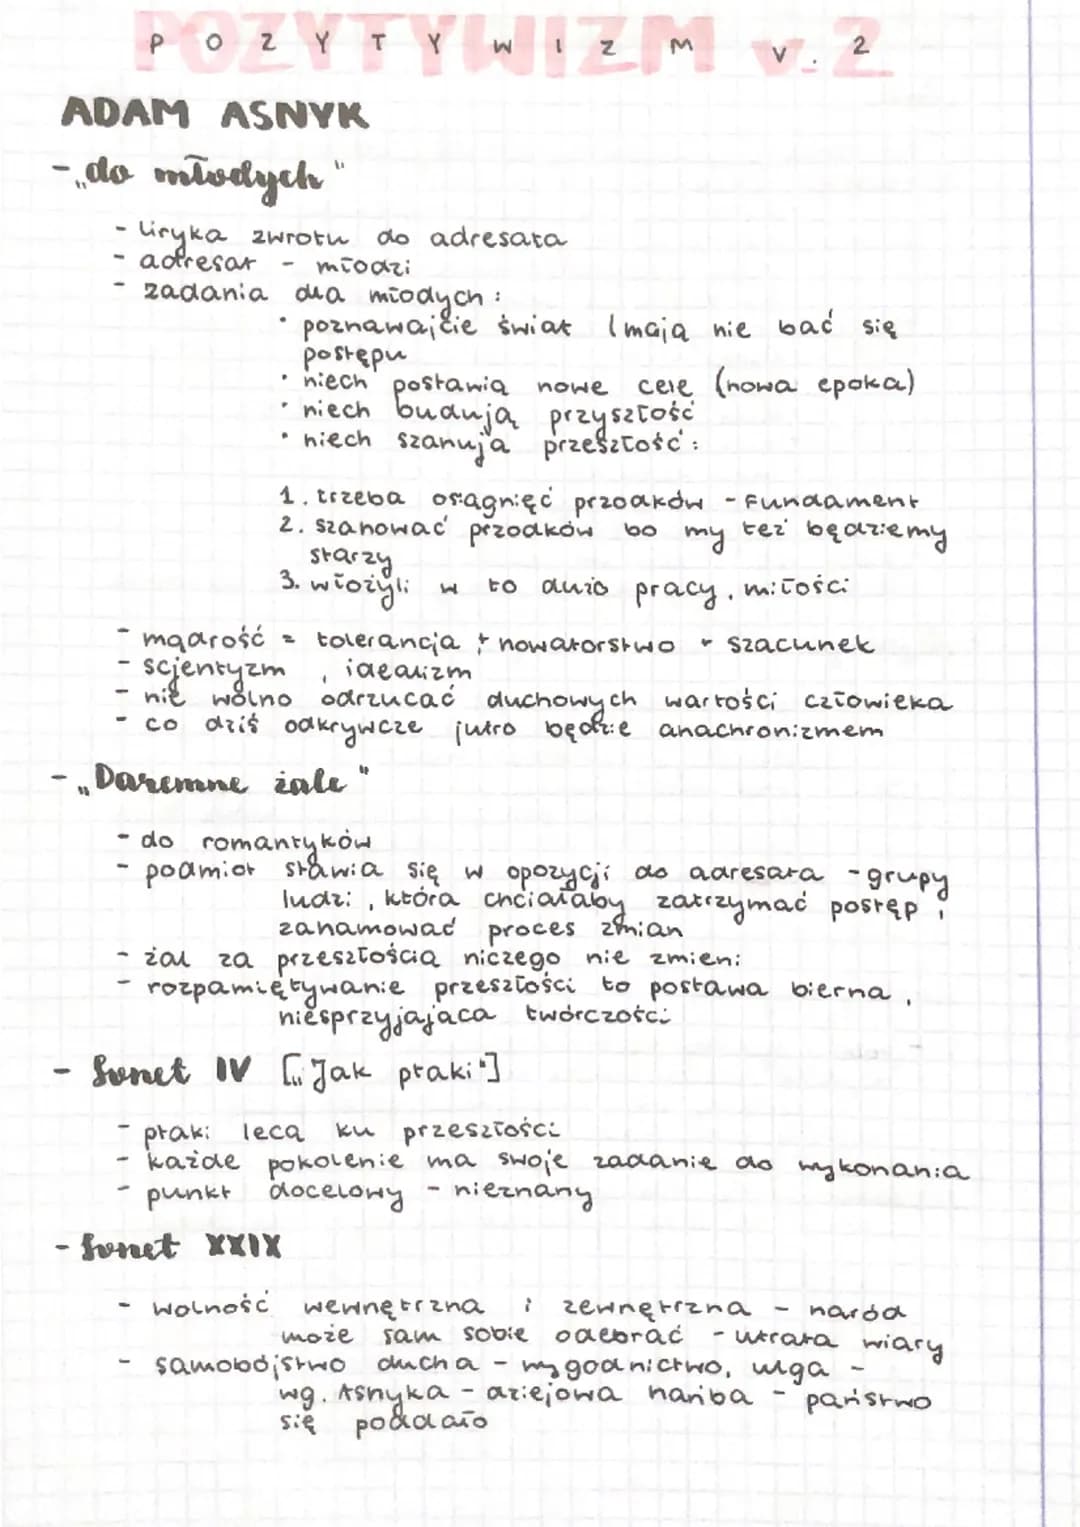 POZYTYWIZM v. 2
ADAM ASNYK
- „do młodych"
- liryka zwrotu do adresata
- adresat - młodzi
- zadania dla młodych:
• poznawajcie świat (mają nie bać się
postępu
• niech postawią nowe cele (nowa epoka)
• niech budują przyszłość
• niech szanują przeszłość:
1. trzeba osiągnięć przodków - fundament
2. szanować przodków bo my też będziemy
starzy
3. włożyli w to dużo pracy, miłości
- mądrość = tolerancja + nowatorstwo + szacunek
- scjentyzm, idealizm
- nie wolno odrzucać duchowych wartości człowieka
- co dziś odkrywcze jutro będzie anachronizmem
- „Daremne żale"
- do romantyków
- podmiot stawia się w opozycji do adresata - grupy
ludzi, która chciałaby zatrzymać postęp,
zahamować proces zmian
- żal za przeszłością niczego nie zmieni
- rozpamiętywanie przeszłości to postawa bierna,
niesprzyjająca twórczości
- Sonet IV [„Jak ptaki"]
- ptaki lecą ku przeszłości
- każde pokolenie ma swoje zadanie do wykonania
- punkt docelowy - nieznany
- Sonet XXIX
- wolność wewnętrzna i zewnętrzna - naród
może sam sobie odebrać - utrata wiary
- samobójstwo ducha - wygodnictwo, ulga -
wg. Asnyka - dziejowa hańba - państwo
się poddało